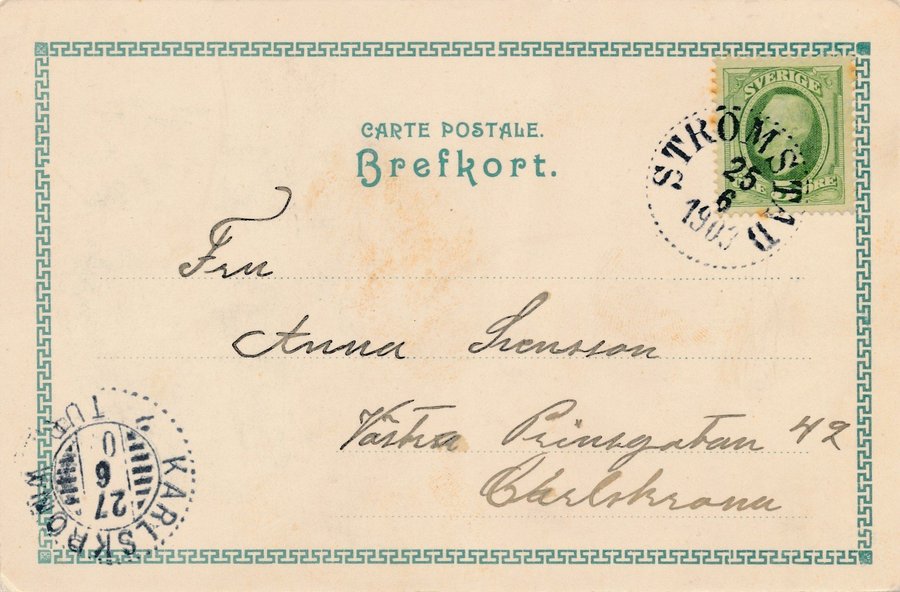 CARTE POSTALE.
Brefkort.
SVERIGE
ÖRE
STRÖMSTAD
25
6
1903
Fru
Anna Svensson
Västra Prinsgatan 42
Carlskrona
KARLSKRONA
1 TUR
27
6
0